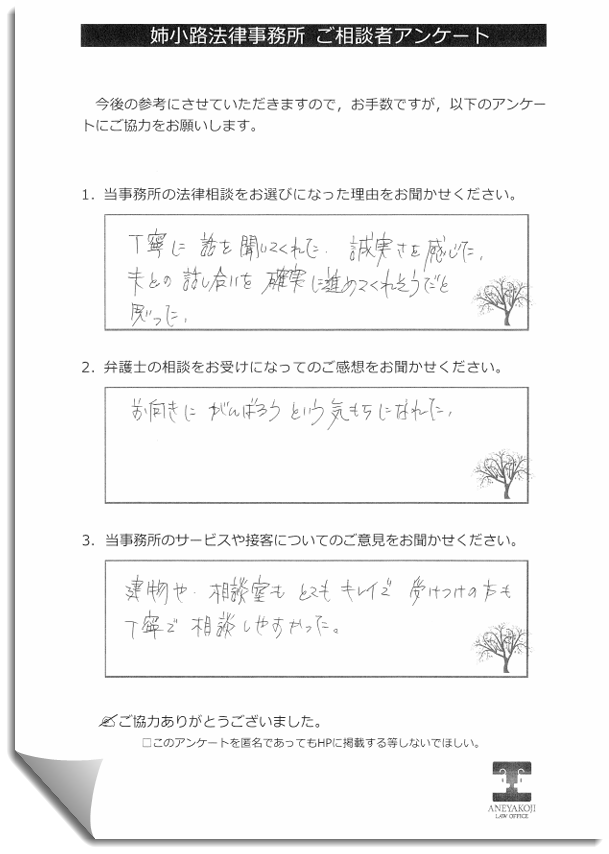 姉小路法律事務所 ご相談者アンケート
今後の参考にさせていただきますので，お手数ですが，以下のアンケー
トにご協力をお願いします。
1．当事務所の法律相談をお選びになった理由をお聞かせください。
丁寧に 話を聞いてくれた. 誠実さを感じた.
夫との話し合いを 確実に進めてくれそうだと
思った.
2．弁護士の相談をお受けになってのご感想をお聞かせください。
お向きに がんばろう という気もちになれた.
3．当事務所のサービスや接客についてのご意見をお聞かせください。
建物や. 相談室も とても キレイで 受けつけの方も
丁寧で 相談しやすかった。
✍ご協力ありがとうございました。
□このアンケートを匿名であってもHPに掲載する等しないでほしい。
ANEYAKOJI
LAW OFFICE